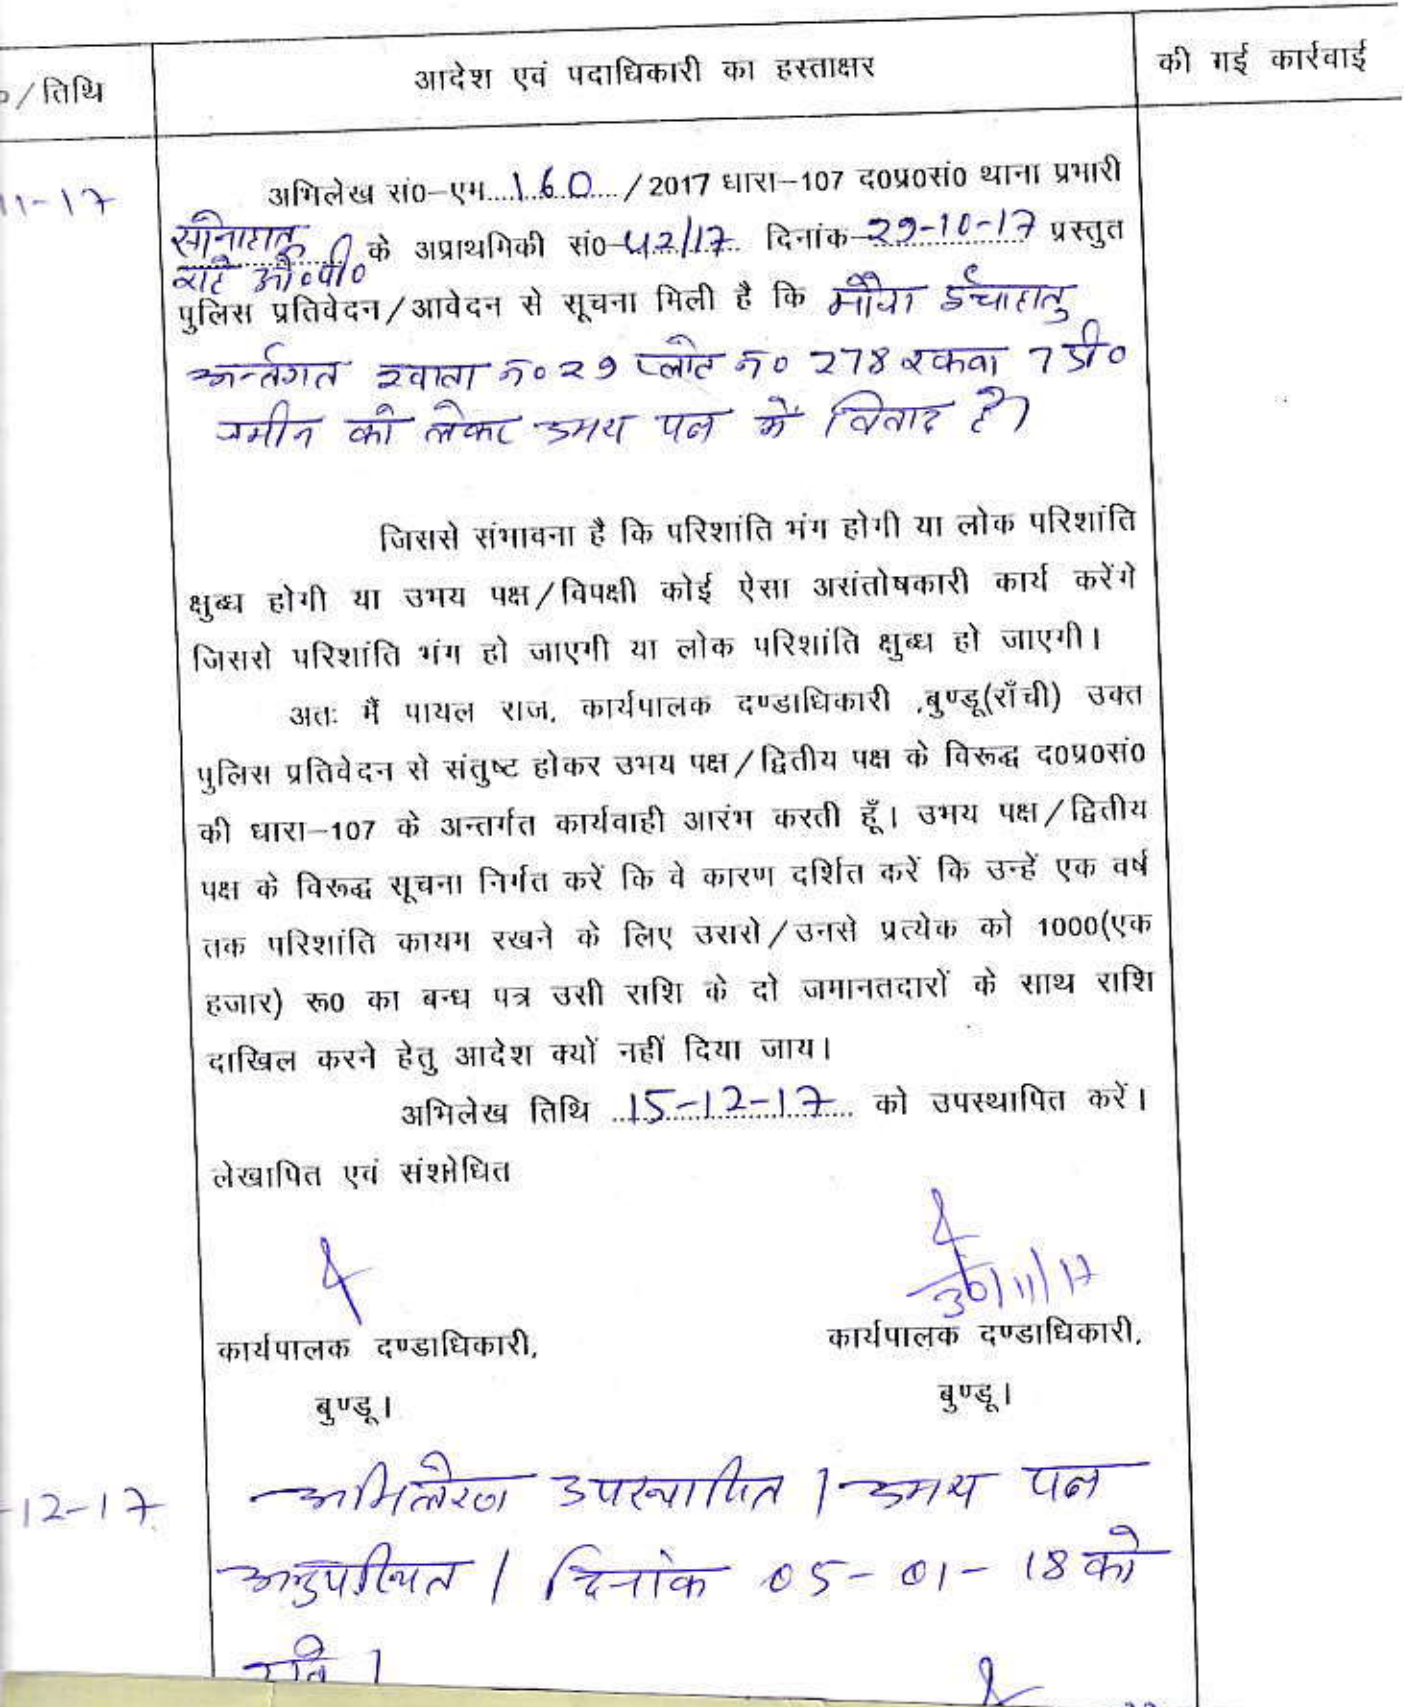 /तिथि
आदेश एवं पदाधिकारी का हस्ताक्षर
की गई कार्रवाई
11-17
अभिलेख सं०-एम 160 /2017 धारा-107 द०प्र०सं० थाना प्रभारी
सोनाहातू के अप्राथमिकी सं०-42/17 दिनांक-29-10-17 प्रस्तुत
राहे ओ०पी०
पुलिस प्रतिवेदन/आवेदन से सूचना मिली है कि मौजा ईचाहातु
अर्न्तगत खाता नं० 29 प्लोट नं० 278 रकवा 7 डी०
जमीन को लेकर उभय पक्ष में विवाद है।
जिससे संभावना है कि परिशांति भंग होगी या लोक परिशांति
क्षुब्ध होगी या उभय पक्ष/विपक्षी कोई ऐसा असंतोषकारी कार्य करेंगे
जिससे परिशांति भंग हो जाएगी या लोक परिशांति क्षुब्ध हो जाएगी।
अतः मैं पायल राज, कार्यपालक दण्डाधिकारी ,बुण्डू(राँची) उक्त
पुलिस प्रतिवेदन से संतुष्ट होकर उभय पक्ष/द्वितीय पक्ष के विरूद्ध द०प्र०सं०
की धारा-107 के अन्तर्गत कार्यवाही आरंभ करती हूँ। उभय पक्ष/द्वितीय
पक्ष के विरूद्ध सूचना निर्गत करें कि वे कारण दर्शित करें कि उन्हें एक वर्ष
तक परिशांति कायम रखने के लिए उससे/उनसे प्रत्येक को 1000(एक
हजार) रू० का बन्ध पत्र उसी राशि के दो जमानतदारों के साथ राशि
दाखिल करने हेतु आदेश क्यों नहीं दिया जाय।
अभिलेख तिथि 15-12-17 को उपस्थापित करें।
लेखापित एवं संशोधित
30/11/17
कार्यपालक दण्डाधिकारी, कार्यपालक दण्डाधिकारी,
बुण्डू। बुण्डू।
-12-17 अभिलेख उपस्थापित। उभय पक्ष
अनुपस्थित। दिनांक 05-01-18 को
रखें।